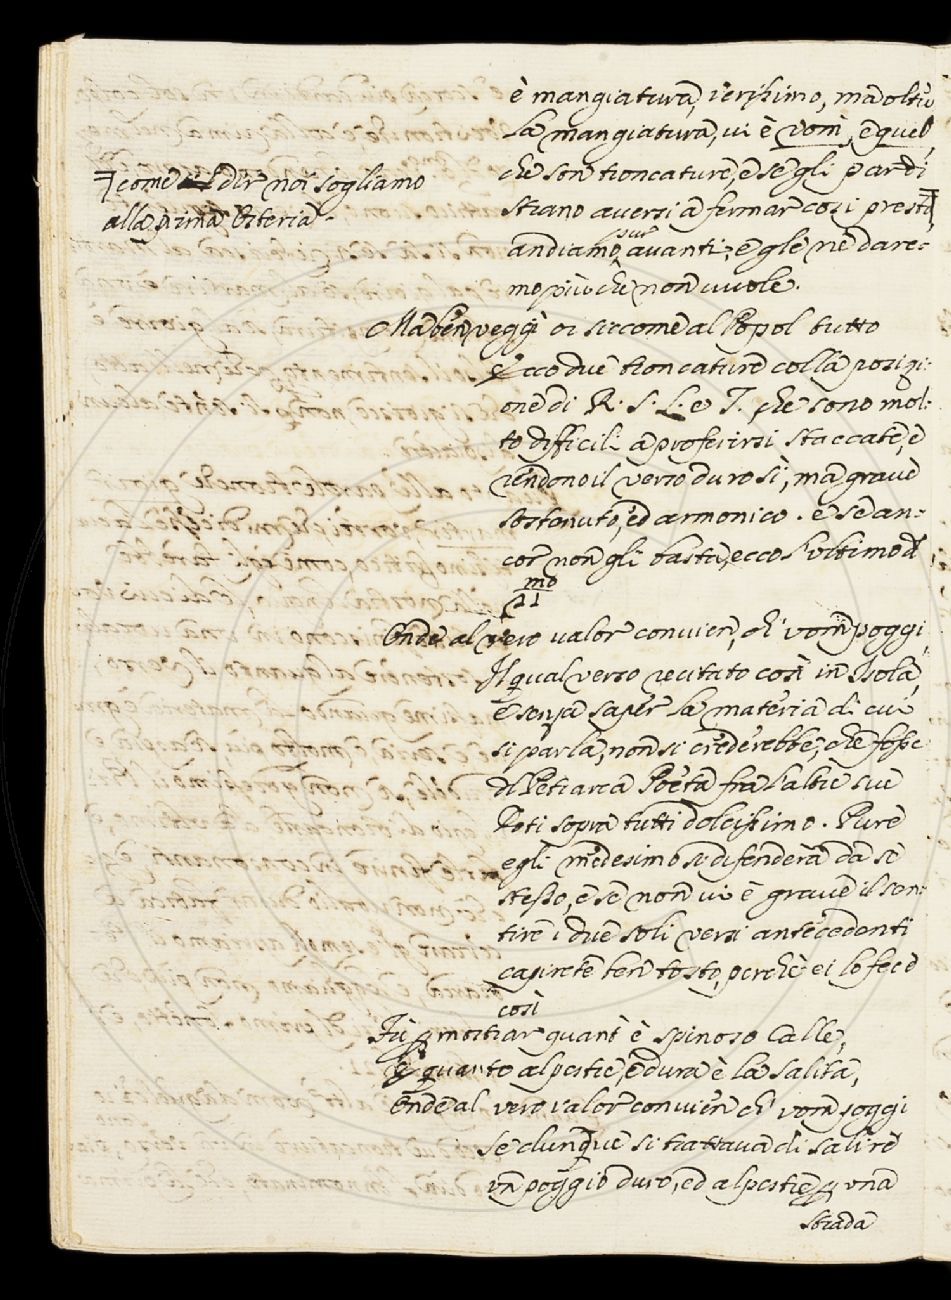 è mangiatura, verissimo, ma oltre
la mangiatura, vi è vom, e quel,
che son troncature, e se gli par di
╕come dir noi sogliamo
alla prima Osteria.
strano aversi a fermar così presto╕
andiam pur avanti, e gle ne dare-
mo più che non vuole.
Ma ben veggi' or sì come al Popol tutto
Ecco due troncature colla posizi-
one di R. S. L e T. che sono mol-
to difficili a proferirsi staccate, e
rendono il verso duro sì, ma grave
sostenuto, ed armonico. e se an-
cor non gli basta, eccol'ultimo d
mo
21
Onde al vero valor convien, ch'vom poggi,
Il qual verso recitato così in Isola,
e senza saper la materia di cui
si parla, non si crederebbe, che fosse
del Petrarca Poeta fra l'altre sue
Doti sopra tutti dolcissimo. Pure
egli medesimo si difenderà da sè
stesso, e se non vi è grave il sen-
tire i due soli versi antecedenti
capirete ben tosto, perchè ei lo fece
così
Fù p mostrar quant' è spinoso Calle,
E quanto alpestre, e dura è la salita,
Onde al vero valor convien ch'vom poggi
Se dunque si trattava di salire
vn poggio duro, ed alpestre p vna
strada